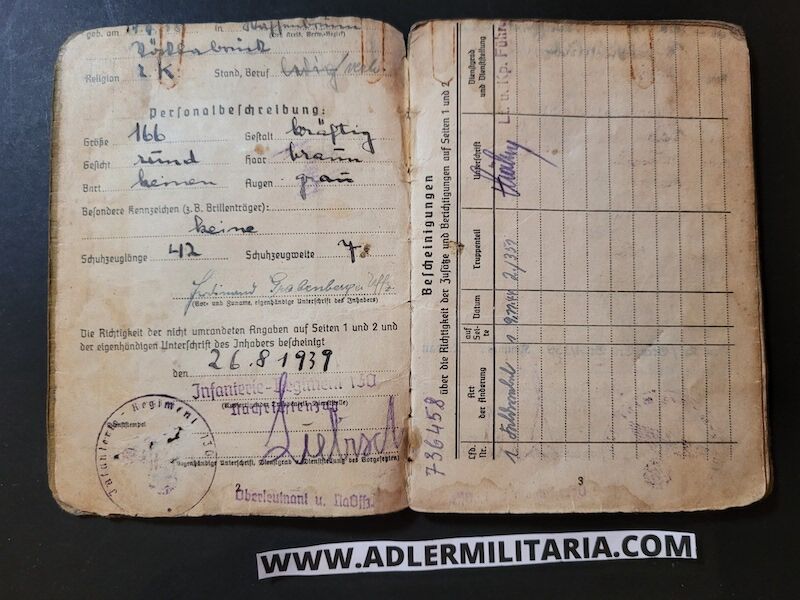 geb. am in
Vöcklabruck
Religion R.K. Stand, Beruf ledig verh.
Personalbeschreibung:
Größe 166 Gestalt kräftig
Gesicht rund Haar braun
Bart keinen Augen grau
Besondere Kennzeichen (z.B. Brillenträger):
keine
Schuhzeuglänge 42 Schuhzeugweite 7
Ferdinand Uffz.
(Vor- und Zuname, eigenhändige Unterschrift des Inhabers)
Die Richtigkeit der nicht umrandeten Angaben auf Seiten 1 und 2 und
der eigenhändigen Unterschrift des Inhabers bescheinigt
den 26.8.1939
Infanterie-Regiment 130
Nachrichtenzug
Infanterie-Regiment 130
Dienststempel
(Eigenhändige Unterschrift, Dienstgrad u. Dienststellung des Vorgesetzten)
2
Oberleutnant u. NaOffz.
736458
Bescheinigungen
über die Richtigkeit der Zusätze und Berichtigungen auf Seiten 1 und 2
Lfd. Nr. Art der Änderung auf Seite Datum Truppenteil Unterschrift Dienstgrad und Dienststellung
1 Lt. u. Kp. Führer
3
WWW.ADLERMILITARIA.COM